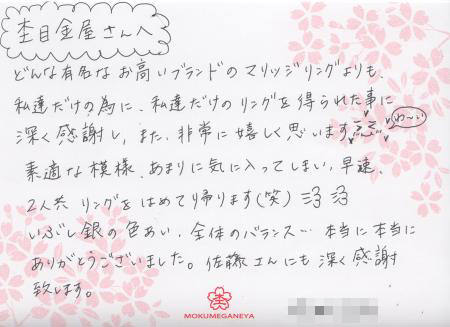 杢目金屋さんへ
どんな有名なお高いブランドのマリッジリングよりも、
私達だけの為に、私達だけのリングを得られた事に
深く感謝し、また、非常に嬉しく思います
わ〜い
素適な模様、あまりに気に入ってしまい、早速、
2人共リングをはめて帰ります(笑)
いぶし銀の色あい、全体のバランス… 本当に本当に
ありがとうございました。佐藤さんにも深く感謝
致します。
MOKUMEGANEYA